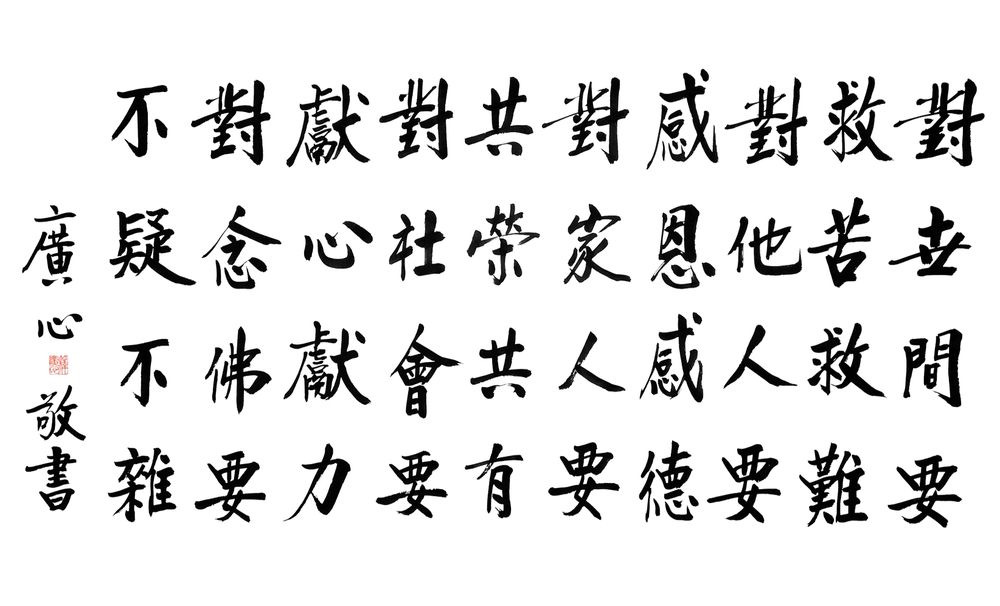 對世間要
救苦救難
對他人要
感恩感德
對家人要
共榮共有
對社會要
獻心獻力
對念佛要
不疑不雜
廣心敬書